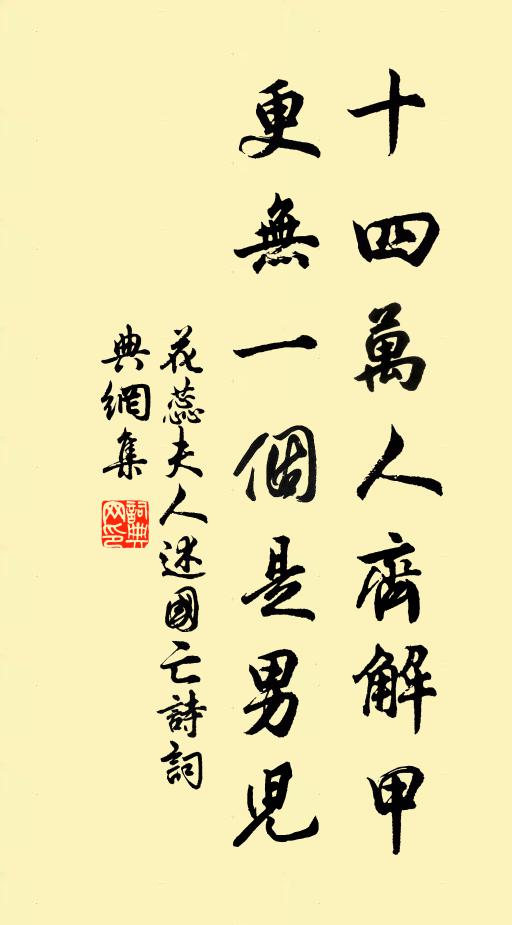 十四萬人齊解甲
更無一個是男児
花蕊夫人述國亡詩詞
典網集
詞典網印